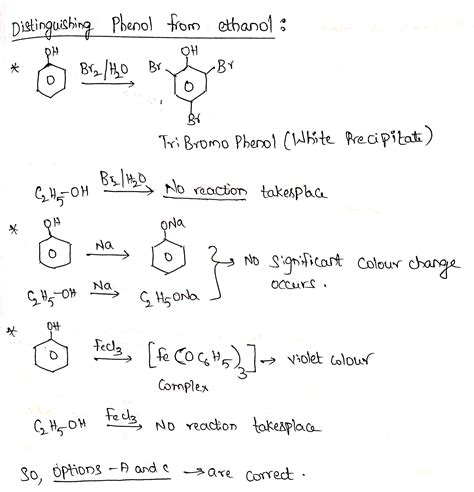 Distinguishing Phenol from ethanol :
* OH Br₂/H₂O OH Br Br Br
TriBromo Phenol (White Precipitate)
C₂H₅-OH Br₂/H₂O No reaction takesplace
* OH Na ONa
No Significant Colour change
C₂H₅-OH Na C₂H₅ONa occurs.
* OH FeCl₃ [Fe(OC₆H₅)₃] → violet colour
Complex
C₂H₅-OH FeCl₃ No reaction takesplace
So, options - A and C → are correct.